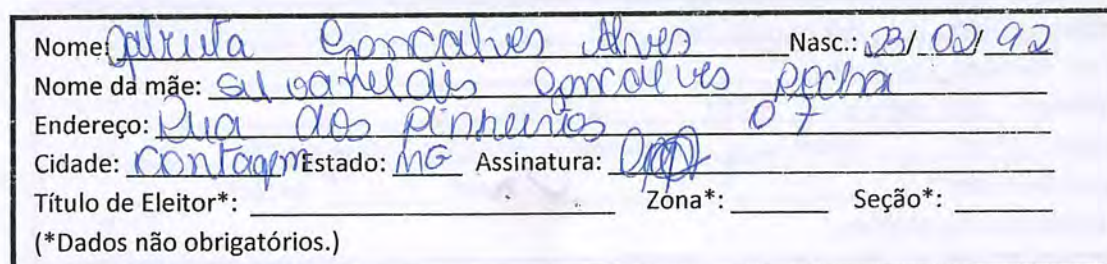 Nome: Goncalves Alves Nasc.: 23/ 02/ 92
Nome da mãe: Goncalves Rocha
Endereço: Rua dos pinheiros 07
Cidade: Contagem Estado: MG Assinatura:
Título de Eleitor*: Zona*: Seção*:
(*Dados não obrigatórios.)